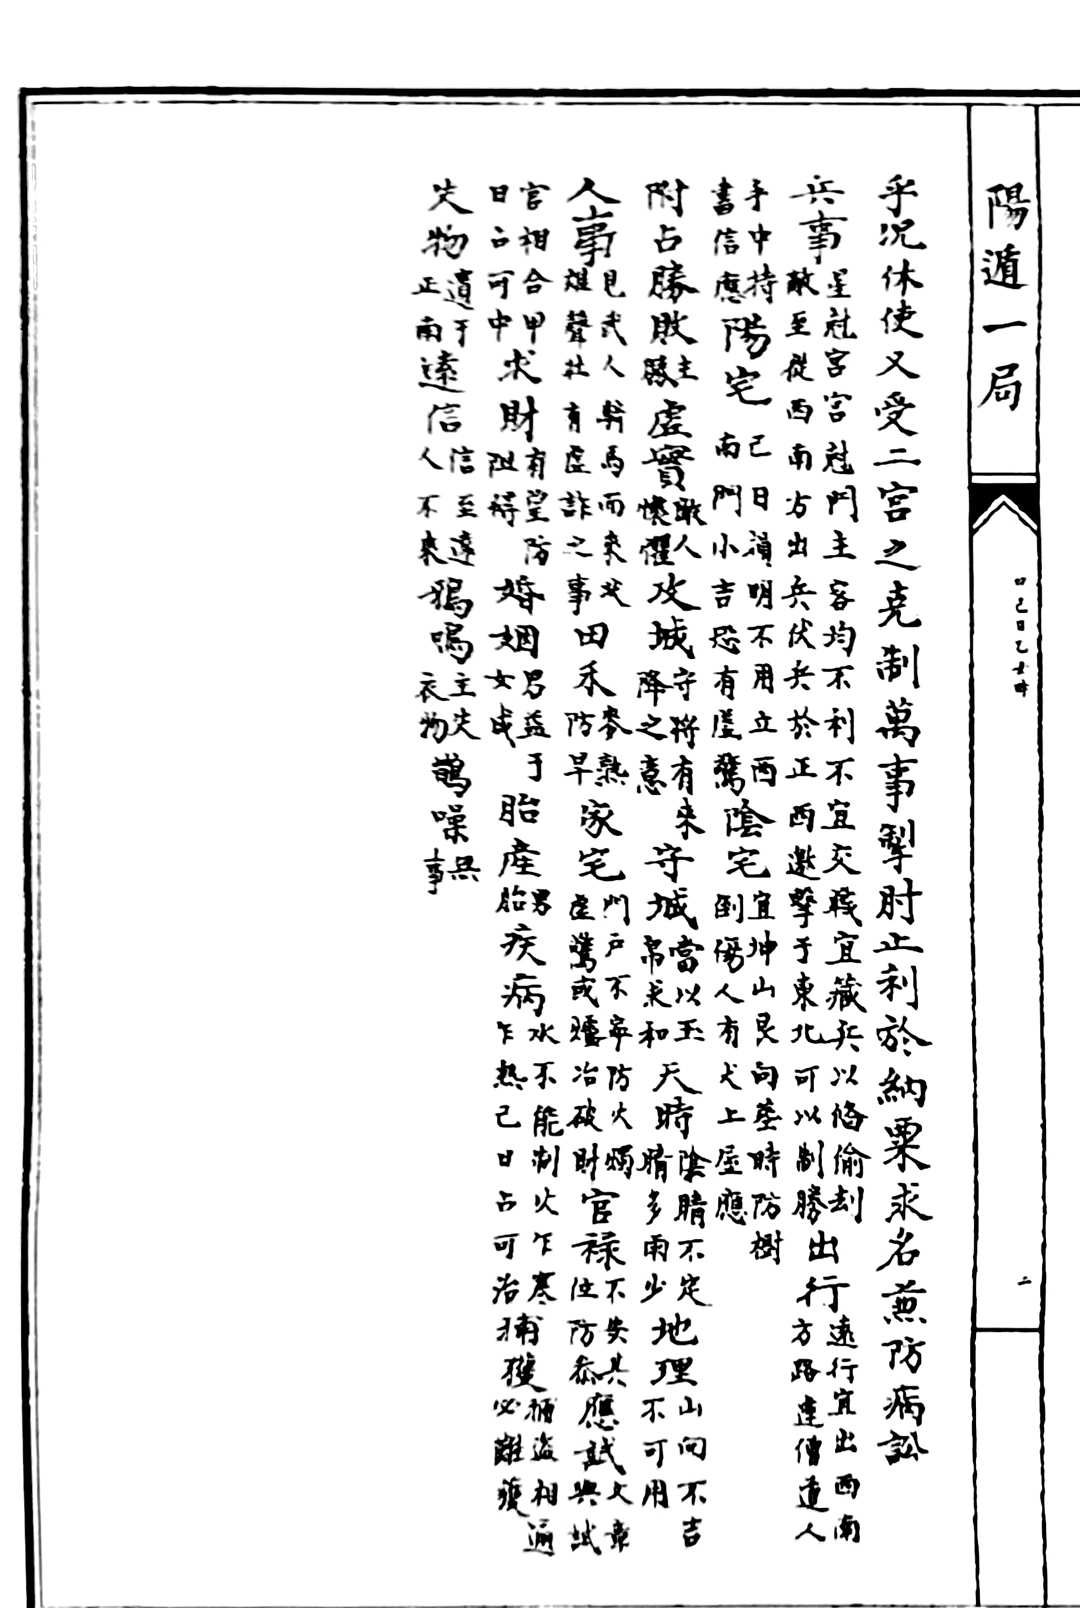 陽遁一局
己日乙丑時
二
乎況休使又受二宮之克制萬事掣肘止利於納粟求名兼防病訟
兵事星尅宮宮尅門主客均不利不宜交戰宜藏兵以俻偷刦敵至從西南方出兵伏兵於正西邀擊于東北可以制勝出行遠行宜出西南方路逢僧道人
手中持書信應陽宅己日損明不用立酉南門小吉恐有虛驚陰宅宜坤山艮向塟時防樹倒傷人有犬上屋應
附占勝敗主勝虛實敵人懷懼攻城守將有来降之意守城當以玉帛求和天時陰晴不定晴多雨少地理山向不吉不可用
人事見武人騎馬而來或雄聲壮有虛詐之事田禾麥熟防旱家宅門戶不寧防火燭虛驚或爐冶破財官祿不失其位防忝應試文章與試
官相合甲日占可中求財有望防阻碍婚姻男益于女成胎產男胎疾病水不能制火乍寒乍熱己日占可治捕獲捕盜相通必難獲
失物遺于正南遠信信至遠人不來鴉鳴主失衣物鵲噪事